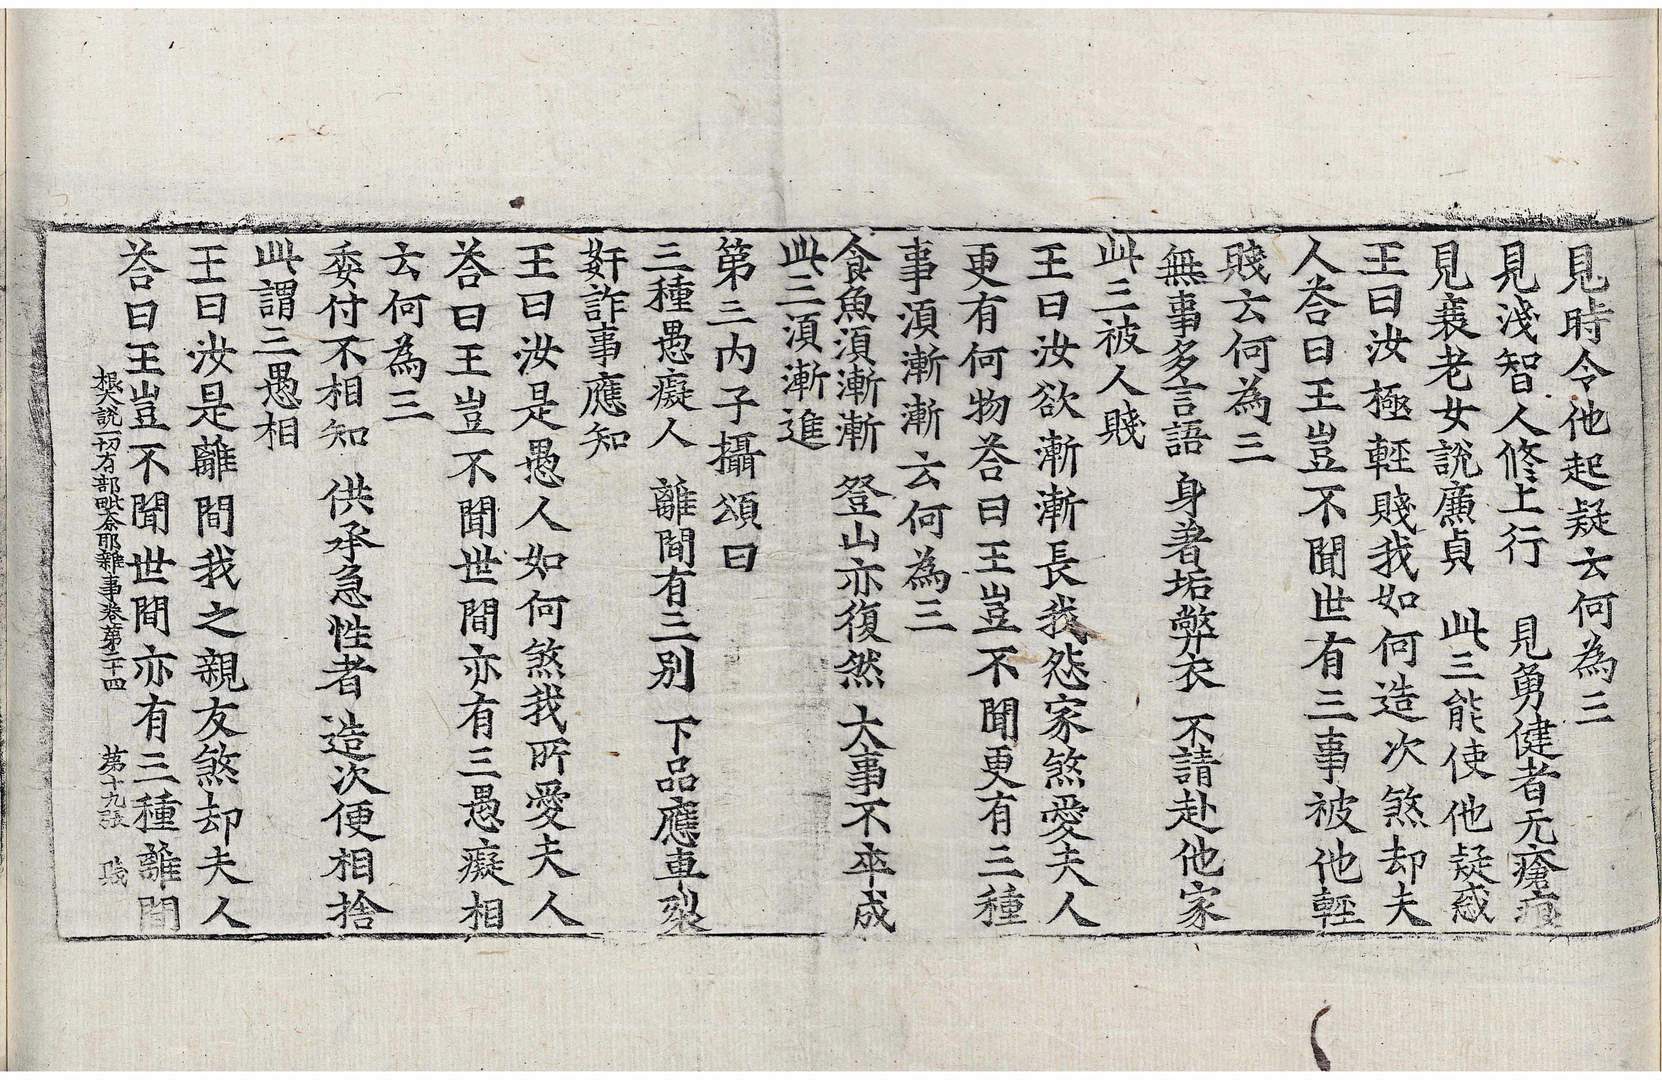 見時令他起疑云何為三
見淺智人修上行　見勇健者无瘡痕
見衰老女說廉貞　此三能使他疑惑
王曰汝極輕賤我如何造次煞却夫
人荅曰王豈不聞世有三事被他輕
賤云何為三
無事多言語　身著垢弊衣　不請赴他家
此三被人賤
王曰汝欲漸漸長我怨家煞愛夫人
更有何物荅曰王豈不聞更有三種
事湏漸漸云何為三
食魚湏漸漸　登山亦復然　大事不卒成
此三湏漸進
第三內子攝頌曰
三種愚癡人　離間有三別　下品應車裂
姧詐事應知
王曰汝是愚人如何煞我所愛夫人
荅曰王豈不聞世間亦有三愚癡相
云何為三
委付不相知　供承急性者　造次便相捨
此謂三愚相
王曰汝是離間我之親友煞却夫人
荅曰王豈不聞世間亦有三種離間
根本說一切有部毗奈耶雜事卷第二十四　第十九張